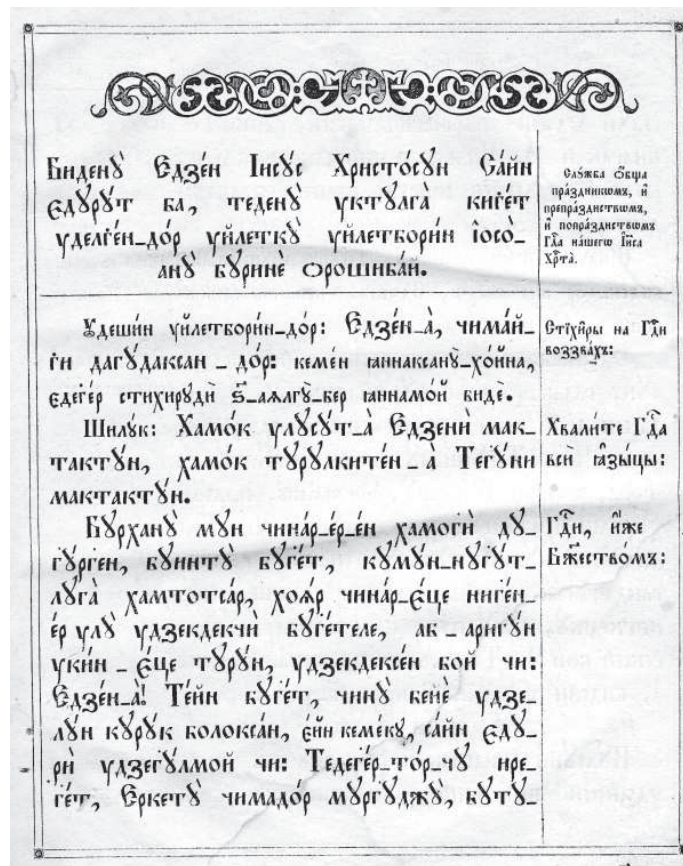 Биденꙋ̀ Єдзе́н Іисꙋс Христо́сꙋн Са́йн
єдꙋрꙋт ба, теденꙋ̀ ꙋктꙋлга киге́т
ꙋделге́н_до́р ꙋйлеткꙋ̀ ꙋйлетбори́н і҆осо̀_
анꙋ̀ бꙋрине ѻрошиба́й.
Слꙋ́жба ѻ҆́бща
пра́здникѡмъ, и҆
препра́зднствѡмъ,
и҆ попра́зднствѡмъ
Гд҇а на́шегѡ І҆и҃са
Хрⷭ҇та̀.
Ꙋдеши́н ꙋйлетбори́н_до́р: Єдзе́н_а̀, чима́й_
ги дагꙋ́даксан _ до́р: кеме́н ꙗннаксанꙋ̀_хо́йна,
єдеге́р стихирꙋдѝ ѕ҃_аѧлгꙋ̀_бер ꙗннамо́й бидѐ.
Стїхи̑ры на Гдⷭ҇и
воззва́хъ:
Шилꙋ́к: Хамо́к ꙋлꙋсꙋ́т_а̀ Єдзенѝ мак_
тактꙋ́н, хамо́к тꙋрꙋлките́н _ а̀ Тегꙋ́ни
мактактꙋ́н.
Хвали́те Гдⷭ҇а
всѝ ꙗ҆зы́цы:
Бꙋрханꙋ̀ мꙋн чина́р_е́р_е́н хамогѝ дꙋ_
гꙋ́рген, бꙋинтꙋ̀ бꙋге́т, кꙋмꙋн_нꙋгꙋ́т_
лꙋга̀ хамтотса́р, хоѧ́р чина́р_е́це ниге́н_
е́р ꙋлꙋ̀ ꙋдзекдекчѝ бꙋге́теле, аб _ аригꙋ́н
ꙋки́н _ е́це тꙋрꙋ́н, ꙋдзекдексе́н бой чи:
Єдзе́н_а̀! Те́йн бꙋге́т, чинꙋ̀ бейѐ ꙋдзе_
лꙋ́н кꙋрꙋ́к болокса́н, е́йн кеме́кꙋ, са́йн єдꙋ_
рѝ ꙋдзегꙋлмой чи: Тедеге́р_то́р_чꙋ̀ ире_
ге́т, Єркетꙋ̀ чимадор мꙋргꙋджꙋ̀, бꙋтꙋ̀_
Гдⷭ҇и, и҆́же
Бж҃ество́мъ: